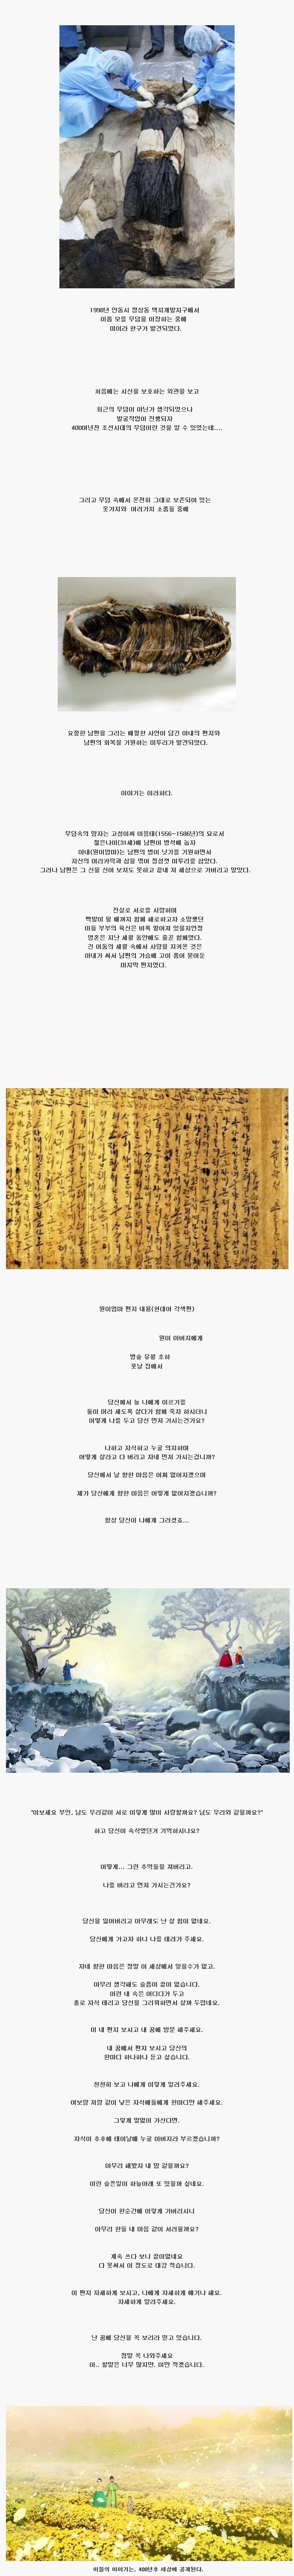 1998년 안동시 정상동 택지개발지구에서
이름 모를 무덤을 이장하는 중에
미이라 한구가 발견되었다.
처음에는 시신을 보호하는 외관을 보고
최근의 무덤이 아닌가 생각되었으나
발굴작업이 진행되자
400여년전 조선시대의 무덤이란 것을 알 수 있었는데....
그리고 무덤 속에서 온전히 그대로 보존되어 있는
옷가지와 여러가지 소품들 중에
요절한 남편을 그리는 애절한 사연이 담긴 아내의 편지와
남편의 회복을 기원하는 미투리가 발견되었다.
이야기는 이러하다.
무덤속의 망자는 고성이씨 이응태(1556~1586년)의 묘로서
젊은나이(31세)에 남편이 병석에 눕자
아내(원이엄마)는 남편의 병이 낫기를 기원하면서
자신의 머리카락과 삼을 엮어 정성껏 미투리를 삼았다.
그러나 남편은 그 신을 신어 보지도 못하고 끝내 저 세상으로 가버리고 말았다.
진실로 서로를 사랑하며
백발이 될 때까지 함께 해로하고자 소망했던
이들 부부의 육신은 비록 떨어져 있을지언정
영혼은 지난 세월 동안에도 줄곧 함께였다.
긴 어둠의 세월 속에서 사랑을 지켜온 것은
아내가 써서 남편의 가슴에 고이 품어 묻어둔
마지막 편지였다.
원이엄마 편지 내용(현대어 각색편)
원이 아버지에게
병술 유월 초하
룻날 집에서
당신께서 늘 나에게 이르기를
둘이 머리 세도록 살다가 함께 죽자 하시더니
어떻게 나를 두고 당신 먼저 가시는건가요?
나하고 자식하고 누굴 의지하며
어떻게 살라고 다 버리고 자네 먼저 가시는겁니까?
당신께서 날 향한 마음은 어찌 없어지겠으며
제가 당신에게 향한 마음은 어떻게 없어지겠습니까?
항상 당신이 나에게 그러셨죠...
"이보세요 부인, 남도 우리같이 서로 이렇게 많이 사랑할까요? 남도 우리와 같을까요?"
하고 당신이 속삭였던거 기억하시나요?
어떻게... 그런 추억들을 져버리고.
나를 버리고 먼저 가시는건가요?
당신을 잃어버리고 아무래도 난 살 힘이 없네요.
당신에게 가고자 하니 나를 데려가 주세요.
자네 향한 마음은 정말 이 세상에서 잊을수가 없고.
아무리 생각해도 슬픔이 끝이 없습니다.
이런 내 속은 어디다가 두고
홀로 자식 데리고 당신을 그리워하면서 살까 두렵네요.
이 내 편지 보시고 내 꿈에 방문 해주세요.
내 꿈에서 편지 보시고 당신의
한마디 하나하나 듣고 싶습니다.
천천히 보고 나에게 이렇게 알려주세요.
여보랑 저랑 같이 낳은 자식에들에게 한마디만 해주세요.
그렇게 말없이 가신다면.
자식이 추후에 태어날때 누굴 아버지라 부르겠습니까?
아무리 해봤자 내 맘 같을까요?
이런 슬픈일이 하늘아래 또 있을까 싶네요.
당신이 한순간에 이렇게 가버리시니
아무리 한들 내 마음 같이 서러울까요?
계속 쓰다 보니 끝이없네요
다 못써서 이 정도로 대강 적습니다.
이 편지 자세하게 보시고, 나에게 자세하게 얘기나 해요.
자세하게 알려주세요.
난 꿈에 당신을 꼭 보리라 믿고 있습니다.
정말 꼭 나와주세요
아.. 할말은 너무 많지만. 이만 적겠습니다.
이들의 이야기는, 400년후 세상에 공개된다.